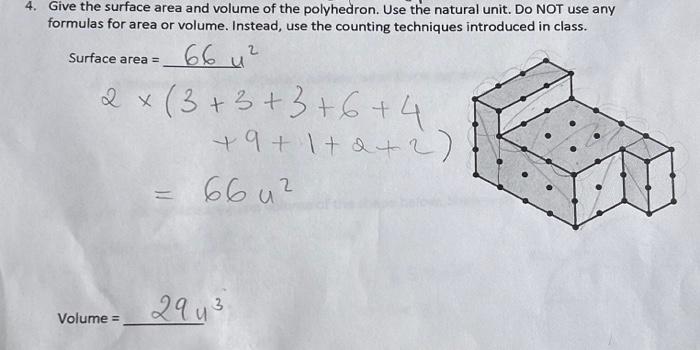 4. Give the surface area and volume of the polyhedron. Use the natural unit. Do NOT use any
formulas for area or volume. Instead, use the counting techniques introduced in class.
Surface area = 66 u²
2 × (3 + 3 + 3 + 6 + 4
+ 9 + 1 + 2 + 2)
= 66 u²
Volume = 29 u³